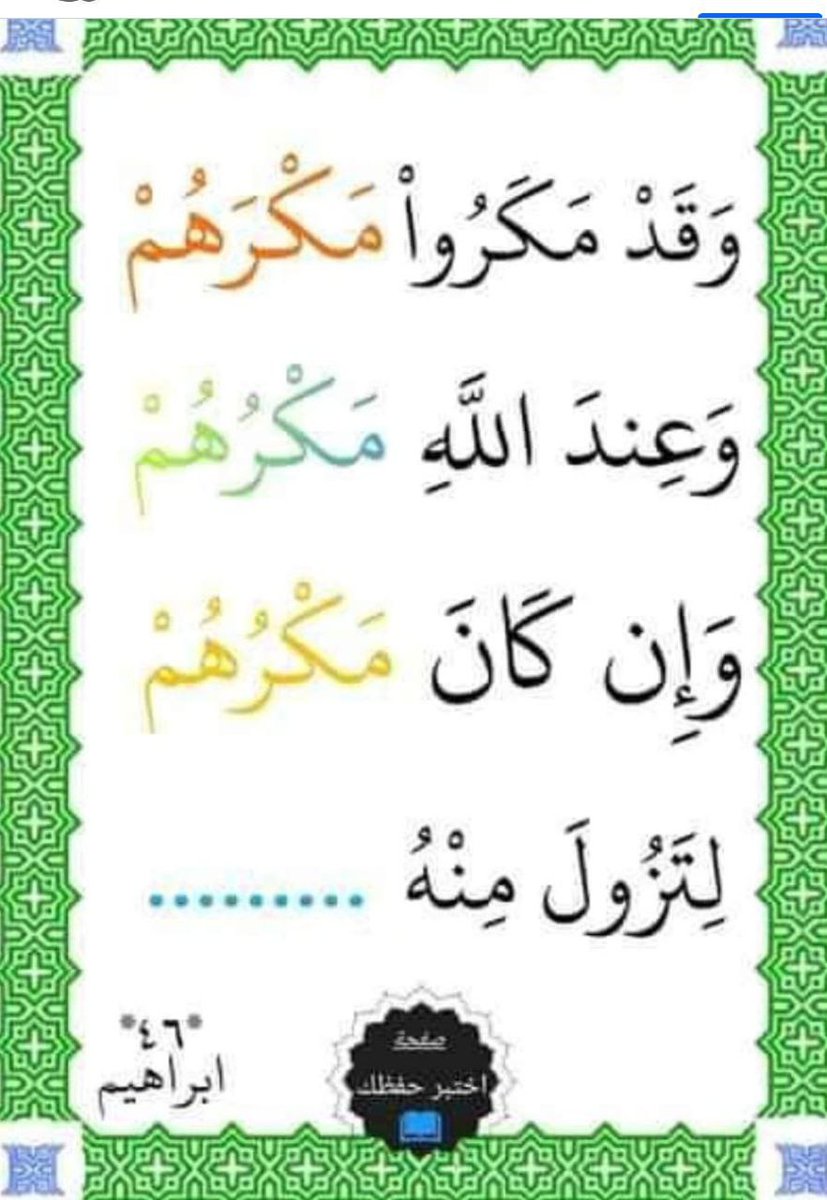 وَقَدْ مَكَرُواْ مَكْرَهُمْ
وَعِندَ اللَّهِ مَكْرُهُمْ
وَإِن كَانَ مَكْرُهُمْ
لِتَزُولَ مِنْهُ .........
*٤٦*
ابراهيم
صفحة
اختبر حفظك